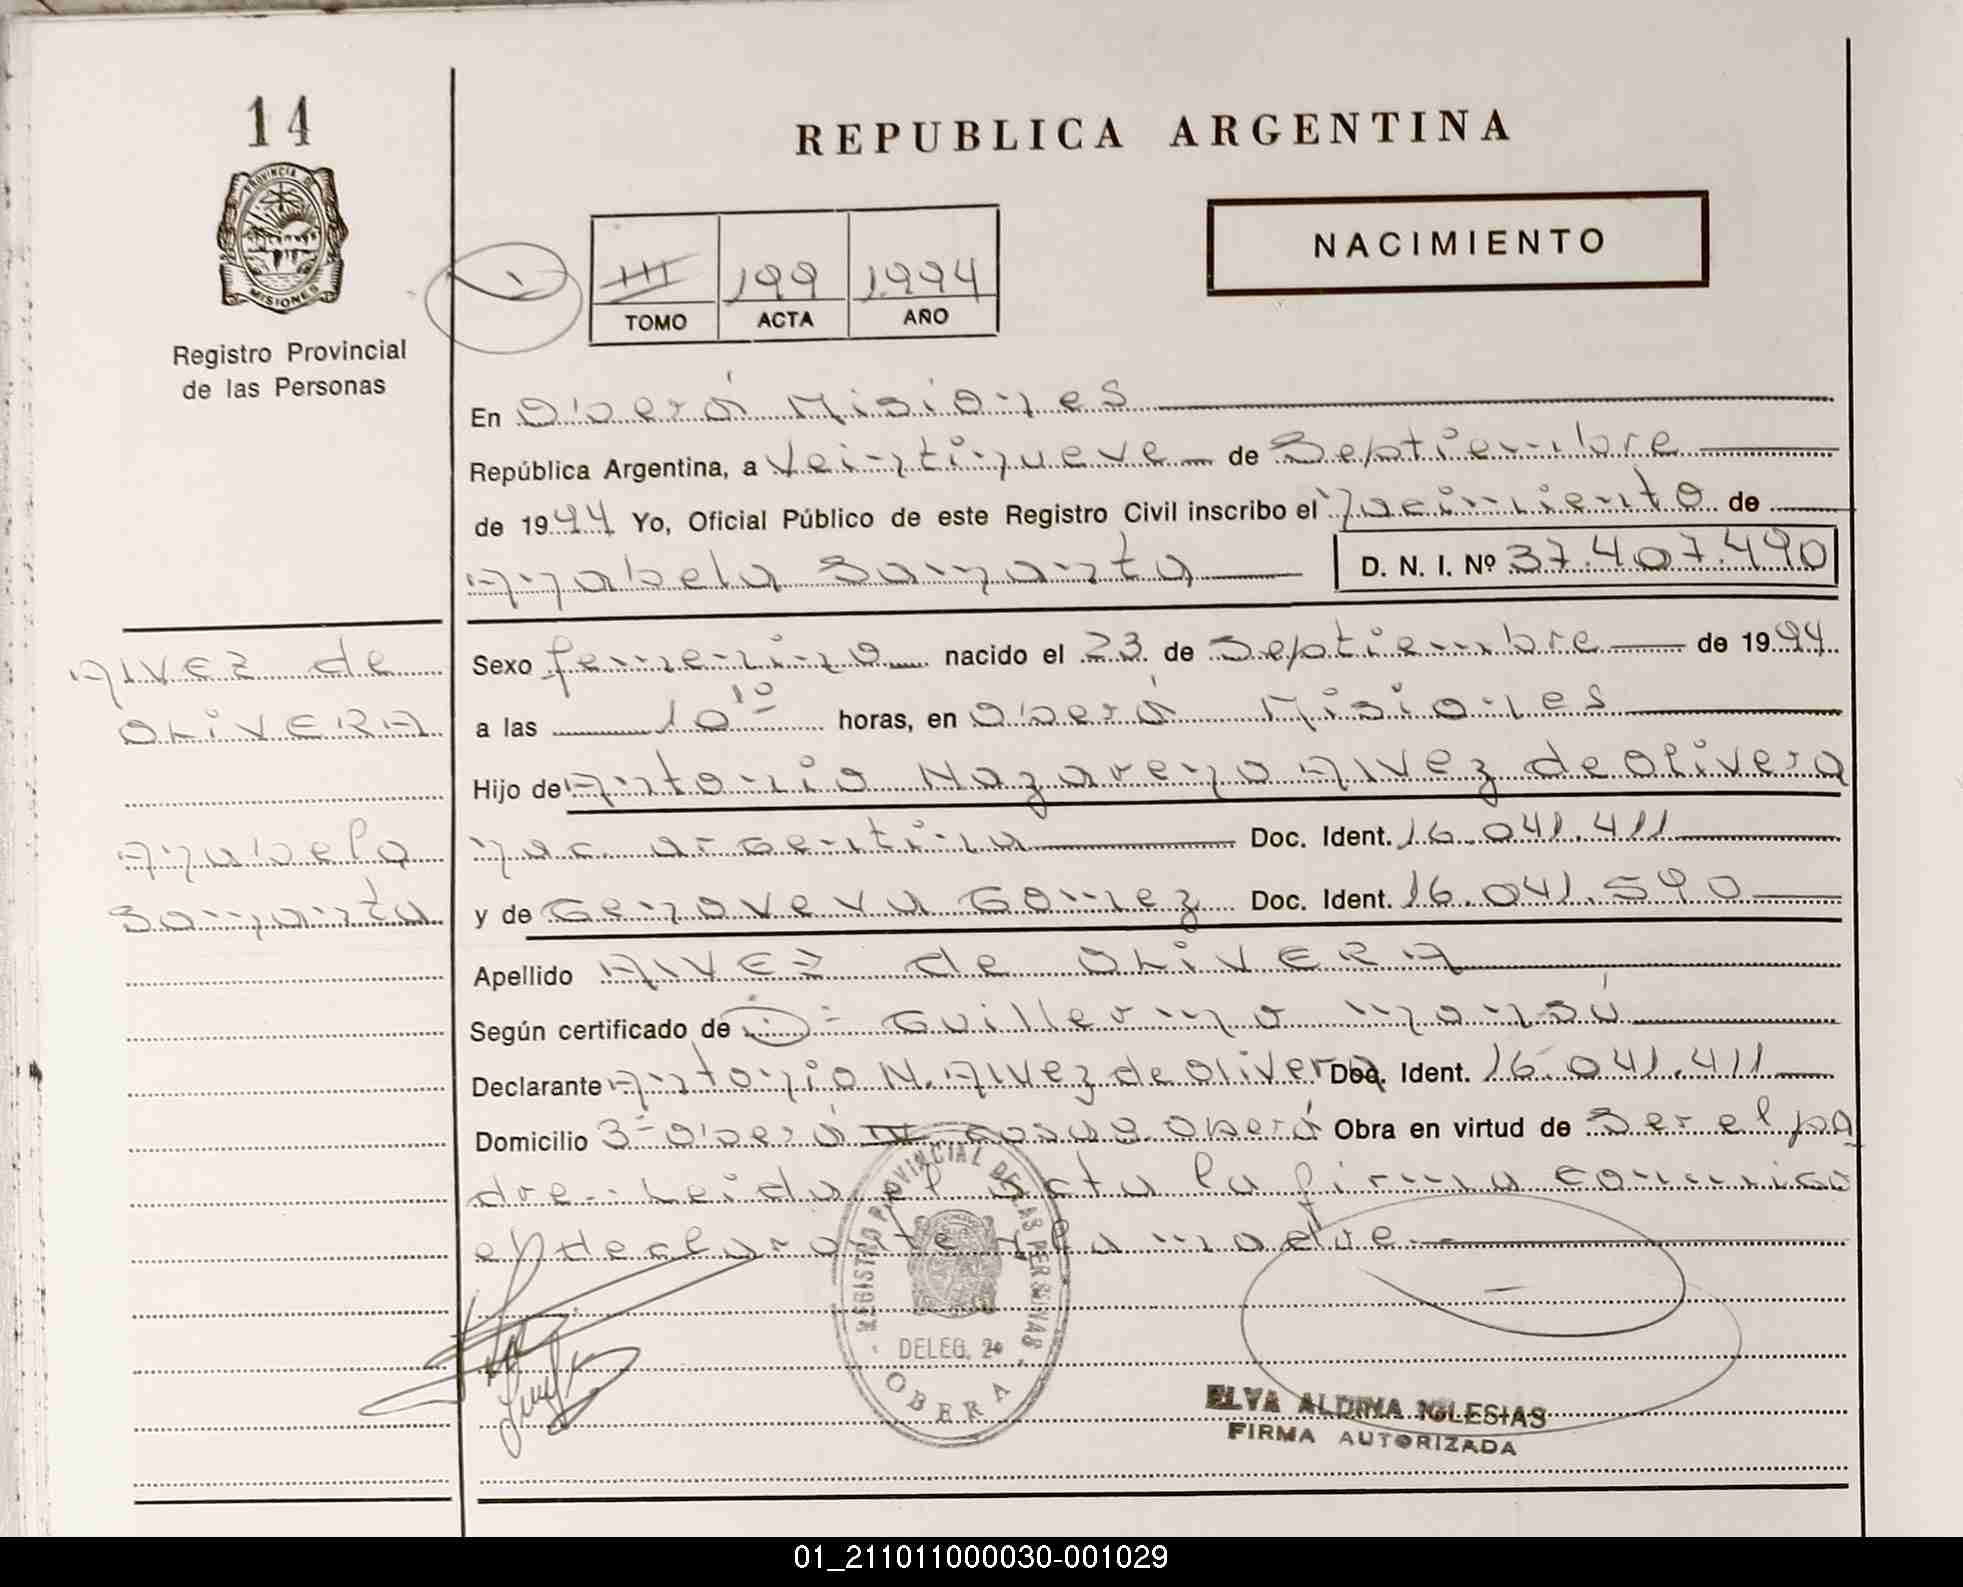 14
REPUBLICA ARGENTINA
PROVINCIA DE
MISIONES
NACIMIENTO
III 199 1.994
TOMO ACTA AÑO
Registro Provincial
de las Personas
En Oberá Misiones
República Argentina, a Veintinueve de Septiembre
de 1994 Yo, Oficial Público de este Registro Civil inscribo el nacimiento de
Anabela Samanta D. N. I. Nº 37.407.490
Sexo femenino nacido el 23 de Septiembre de 1994
a las 10 10 horas, en Oberá Misiones
Hijo de Antonio Nazareno Alvez de Olivera
nac. argentina Doc. Ident. 16.041.411
y de Genoveva Gomez Doc. Ident. 16.041.590
Apellido AlVEZ de OLIVERA
Según certificado de Guillermo
Declarante Antonio N. Alvez de Olivera Doc. Ident. 16.041.411
Domicilio 3= Oberá IV casa Oberá Obra en virtud de Ser el pa
dre.- Leida el acta la firma conmigo
el declarante y la madre.-
AlVEZ de
OLIVERA
Anabela
Samanta
REGISTRO PROVINCIAL DE LAS PERSONAS
DELEG.
OBERA
ELVA ALDINA IGLESIAS
FIRMA AUTORIZADA
01_211011000030-001029